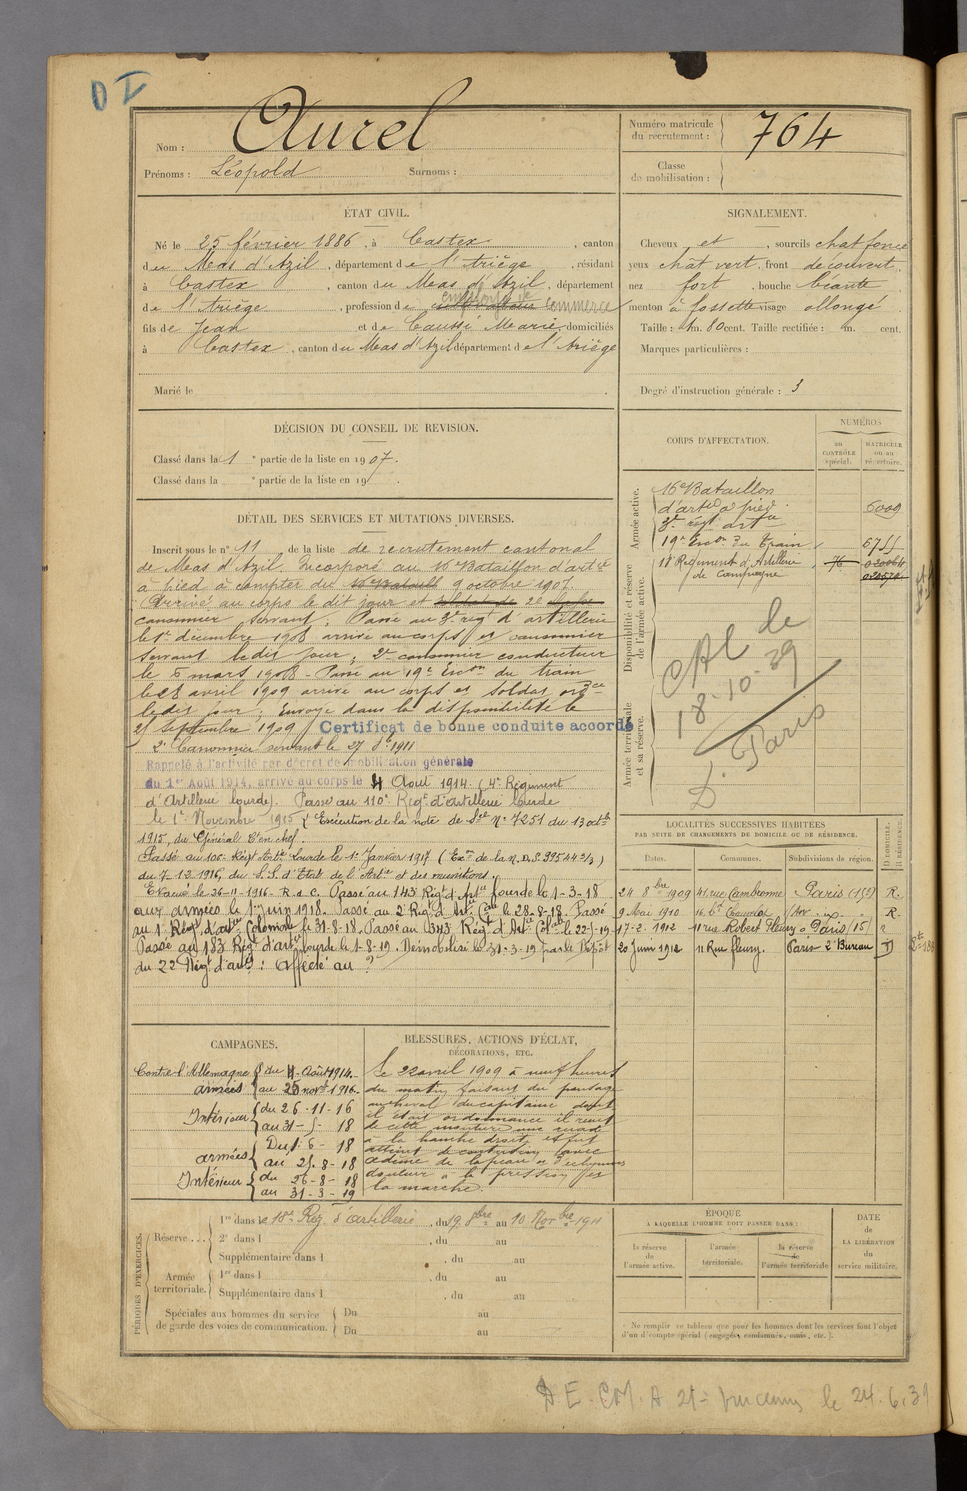 D I
Nom : Aurel
Prénoms : Léopold Surnoms :
Numéro matricule du recrutement : 764
Classe de mobilisation :
ÉTAT CIVIL.
Né le 25 février 1886, à Castex, canton
du Mas d'Azil, département de l'Ariège, résidant
à Castex, canton du Mas d'Azil, département
de l'Ariège, profession de employé de commerce
fils de Jean et de Caussé Marie, domiciliés
à Castex, canton du Mas d'Azil département de l'Ariège
Marié le
SIGNALEMENT.
Cheveux et, sourcils chat foncé
yeux chât vert, front découvert,
nez fort, bouche béante
menton à fossette visage allongé
Taille : 1m. 80 cent. Taille rectifiée : m. cent.
Marques particulières :
Degré d'instruction générale : 3
DÉCISION DU CONSEIL DE REVISION.
Classé dans la 1e partie de la liste en 1907.
Classé dans la e partie de la liste en 19 .
CORPS D'AFFECTATION.
NUMÉROS
au CONTRÔLE spécial.
MATRICULE ou au répertoire.
Armée active.
16e Bataillon
d'artie à pied 6009
3e régt artie
19e Escon du Train 6755
Disponibilité et réserve de l'armée active.
18 Régiment d'Artillerie 76 02006
de Campagne
Armée territoriale et sa réserve.
CAL le
18.10.39
D. Paris
DÉTAIL DES SERVICES ET MUTATIONS DIVERSES.
Inscrit sous le n° 11 de la liste de recrutement cantonal
de Mas d'Azil. Incorporé au 16 Bataillon d'artie
à pied à compter du 16 Bataill 9 octobre 1907.
Arrivé au corps le dit jour et soldat de 2e
canonnier servant; Passé au 3e régt d'artillerie
le 1er décembre 1908 arrivé au corps et canonnier
servant le dit jour; 2e canonnier conducteur
le 5 mars 1908 - Passé au 19e Escon du train
le 28 avril 1909 arrivé au corps et soldat ordce
le dit jour; Envoyé dans la disponibilité le
25 septembre 1909 Certificat de bonne conduite accordé
2e Canonnier servant le 27 8b 1911
Rappelé à l'activité par décret de mobilisation générale
du 1er Août 1914, arrivé au corps le 4 Août 1914. (4e Régiment
d'Artillerie lourde). Passé au 110e Régt d'artillerie lourde
le 1er Novembre 1915 (Exécution de la note de Sce N° 7251 du 13 octb
1915, du Général Ct en chef.
Passé au 106e Régt Artie Lourde le 1er Janvier 1917 (Exon de la N.D.S. 39544 2/3)
du 7-12-1916, du S.S. d'Etat de l'Artie et des munitions.
Evacué le 26-11-1916 - R.à.C. Passé au 143 Régt d'Artie Lourde le 1-3-18
aux armées le 1er juin 1918. Passé au 2e Régt d'Artie Cale le 28-8-18. Passé
au 1 Régt d'artie Coloniale le 31-8-18. Passé au 343 Régt d'Artie Cole le 22-5-19
Passé au 183 Régt d'artie lourde le 1-8-19. Démobilisé le 31-3-19 par le Dépôt
du 22 Régt d'artie : affecté au ?
LOCALITÉS SUCCESSIVES HABITÉES
PAR SUITE DE CHANGEMENTS DE DOMICILE OU DE RÉSIDENCE.
Dates. Communes. Subdivisions de région. D. DOMICILE. R. RÉSIDENCE.
24 8bre 1909 41, rue Cambronne Paris (15e) R.
9 Mai 1910 16 R.
17-2-1912 11 rue Robert Fleury Paris (15)
20 Juin 1912 11 Rue fleury. Paris 2e Bureau D
CAMPAGNES.
Contre l'Allemagne
armées du 4-Août 1914.
au 25 novb 1916.
Intérieur du 26-11-16
au 31-5-18
armées Du 1-6-18
au 25-8-18
Intérieur du 26-8-18
au 31-3-19
BLESSURES, ACTIONS D'ÉCLAT,
DÉCORATIONS, ETC.
Le 22 avril 1909 à neuf heures
du matin faisant du pansage
au cheval du capitaine dont
il était ordonnance il reçut
de cette monture une ruade
à la hanche droite et fut
atteint de contusion avec
œdème de la peau et d'ecchymoses
douleur à la pression
la marche.
PÉRIODES D'EXERCICES.
Réserve . . .
1re dans le 18e Rég. d'artillerie, du 19 8bre au 10 Novbre 1911
2e dans l , du au
Supplémentaire dans l , du au
Armée territoriale.
1re dans l , du au
Supplémentaire dans l , du au
Spéciales aux hommes du service
de garde des voies de communication.
Du au
Du au
ÉPOQUE
À LAQUELLE L'HOMME DOIT PASSER DANS :
la réserve de l'armée active.
l'armée territoriale.
la réserve de l'armée territoriale
DATE de LA LIBÉRATION du service militaire.
Ne remplir ce tableau que pour les hommes dont les services font l'objet
d'un d'compte spécial (engagés, condamnés, omis, etc.).
D E. CM. A 21e Vincennes le 24.6.31